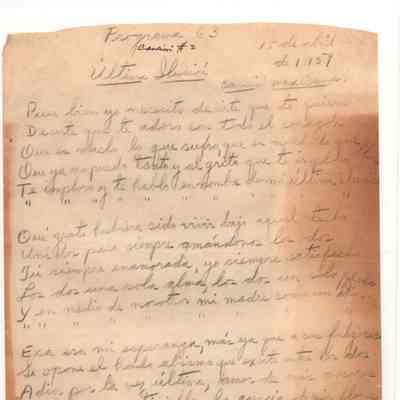 Programa 63
Canción # 2
15 de abril
de 1957
Última Ilusión
Canción
Pues bien yo necesito decirte que te quiero
Decirte que te adoro con todo el corazón
Que es mucho lo que sufro, que es mucho lo que
Que ya no puedo tanto y al grito que te
Te imploro y te hablo en nombre de mi última ilusión
" " " " " " " "
Qué grato hubiera sido vivir bajo aquel techo
Unidos para siempre amándonos los dos
Tú siempre enamorada, yo siempre satisfecho
Los dos una sola alma, los dos un solo pecho
Y en medio de nosotros mi madre como un
" " " " " " "
Esa era mi esperanza, más ya que a sus fulgores
Se opone el hondo abismo que existe entre los dos
Adiós por la vez última, amor de mis amores